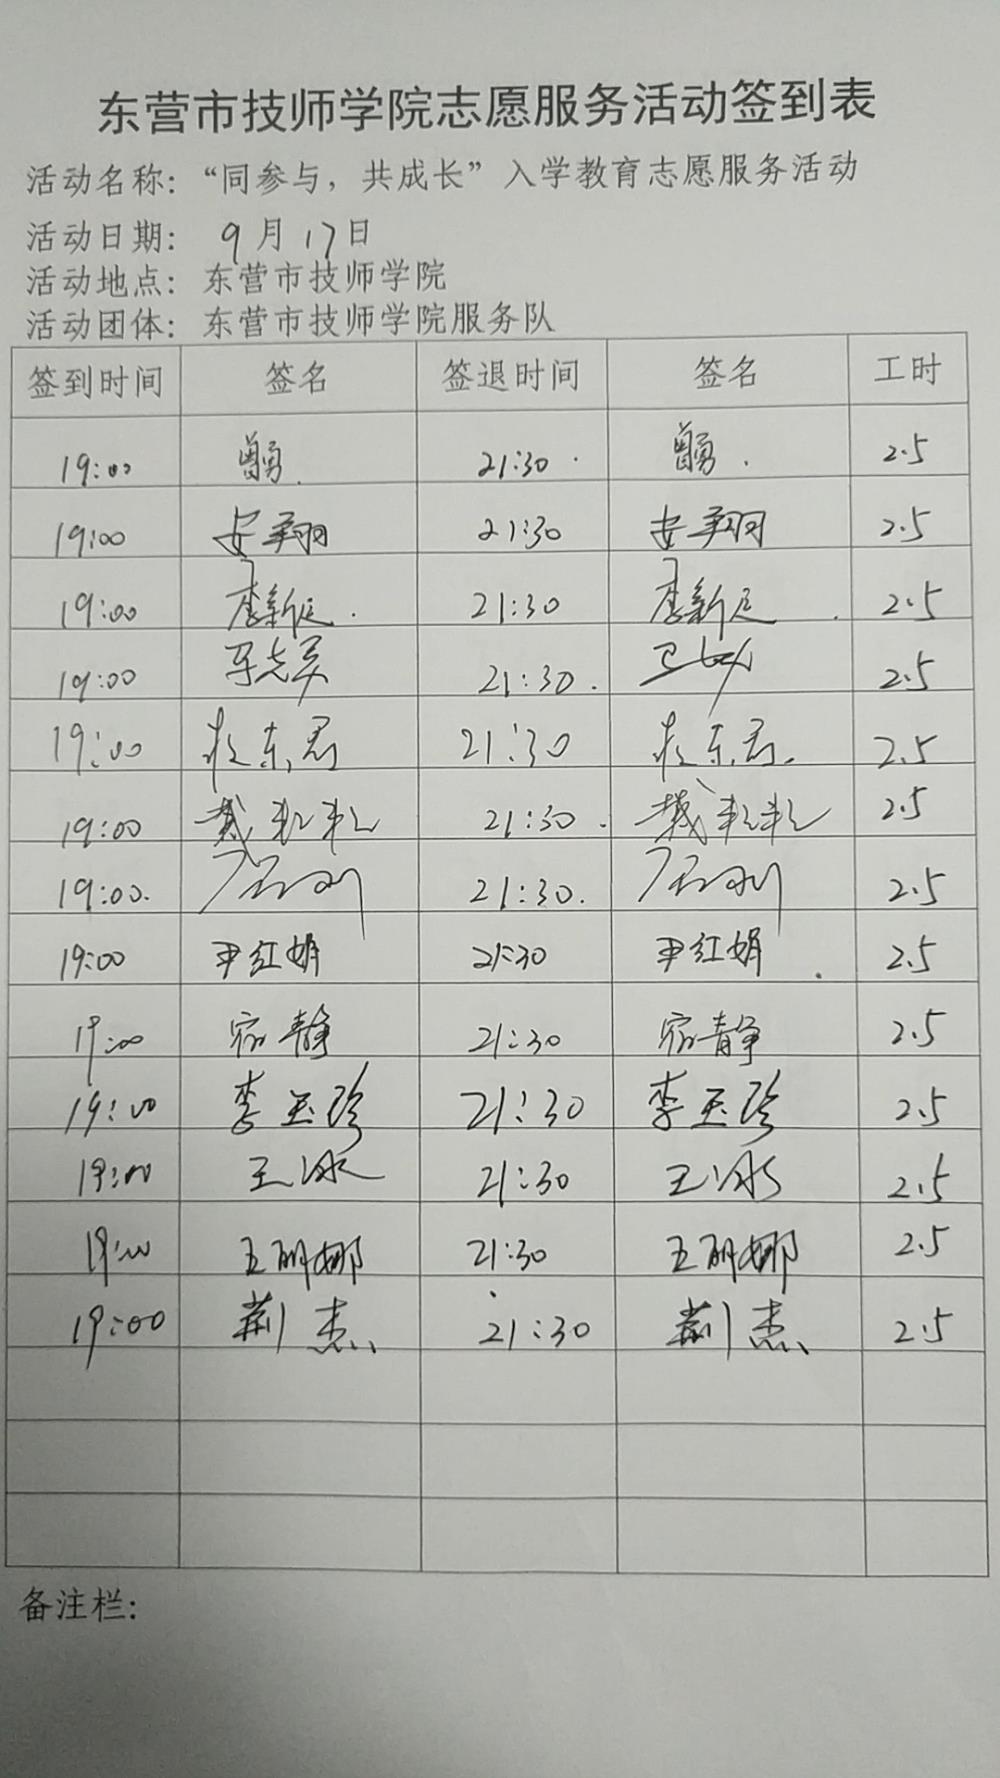 东营市技师学院志愿服务活动签到表
活动名称：“同参与，共成长”入学教育志愿服务活动
活动日期： 9月17日
活动地点：东营市技师学院
活动团体：东营市技师学院服务队
签到时间 签名 签退时间 签名 工时
19:00 曾勇 21:30 曾勇 2.5
19:00 安翔 21:30 安翔 2.5
19:00 李新廷 21:30 李新廷 2.5
19:00 21:30 2.5
19:00 21:30 2.5
19:00 21:30 2.5
19:00 21:30 2.5
19:00 尹红娟 21:30 尹红娟 2.5
19:00 宿静 21:30 宿静 2.5
19:00 李玉珍 21:30 李玉珍 2.5
19:00 王冰 21:30 王冰 2.5
19:00 王丽娜 21:30 王丽娜 2.5
19:00 荆杰 21:30 荆杰 2.5
备注栏：